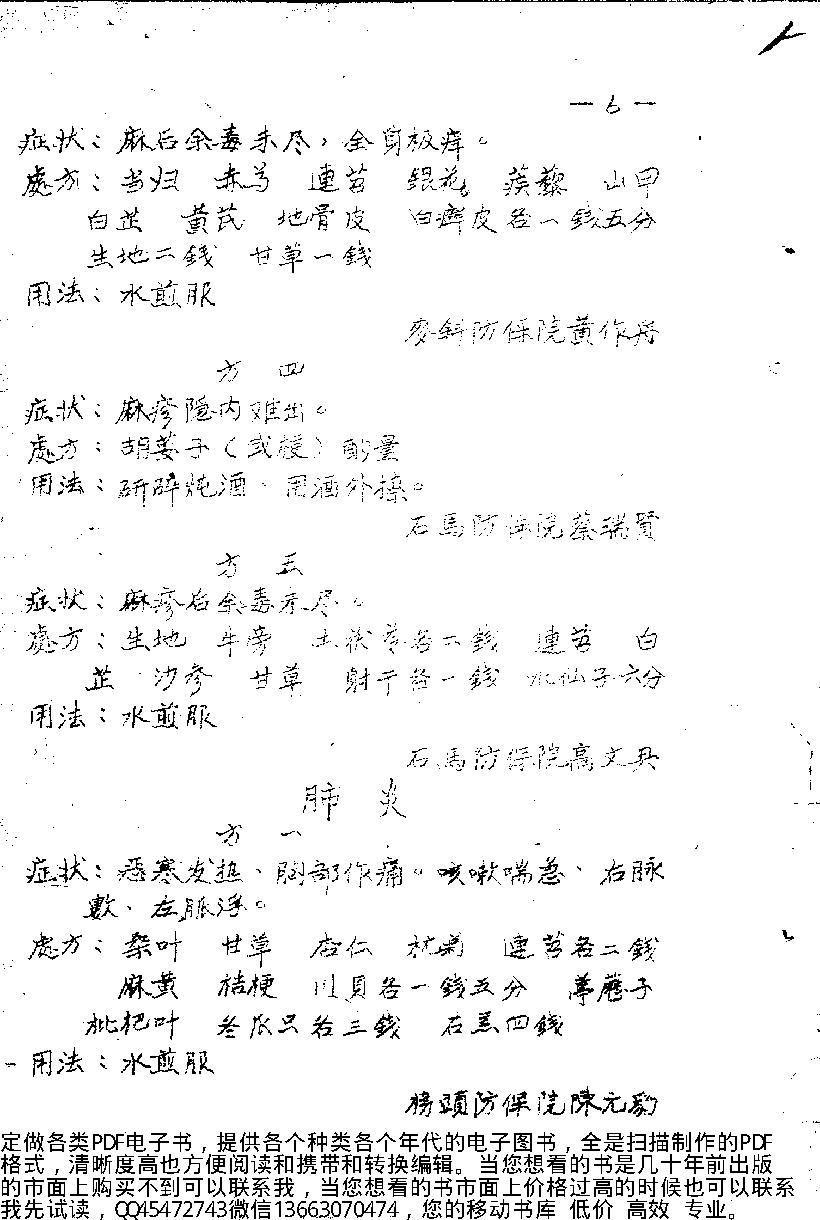 — 6 —
症状：麻后余毒未尽，全身极痒。
處方：当归 赤芍 連苕 銀花 蒺藜 山甲
白芷 黃芪 地骨皮 白癬皮各一錢五分
生地二錢 甘草一錢
用法：水煎服
麥斜防保院黃作舟
方 四
症状：麻疹隐内难出。
處方：胡荽子（或梗）酌量
用法：研碎炖酒、用酒外擦。
石馬防保院蔡瑞賢
方 五
症状：麻疹后余毒未尽。
處方：生地 牛旁 土茯苓各二錢 連苕 白
芷 沙参 甘草 射干各一錢 水仙子六分
用法：水煎服
石馬防保院高文丹
肺 炎
方 一
症状：恶寒发热、胸部作痛。咳嗽喘急、右脉
數、左脈浮。
處方：桑叶 甘草 杏仁 杭菊 連苕各二錢
麻黄 桔梗 川貝各一錢五分 葶苈子
枇杷叶 冬瓜只各三錢 石羔四錢
用法：水煎服
榜頭防保院陳元
定做各类PDF电子书，提供各个种类各个年代的电子图书，全是扫描制作的PDF
格式，清晰度高也方便阅读和携带和转换编辑。当您想看的书是几十年前出版
的市面上购买不到可以联系我，当您想看的书市面上价格过高的时候也可以联系
我先试读，QQ45472743微信13663070474，您的移动书库 低价 高效 专业。